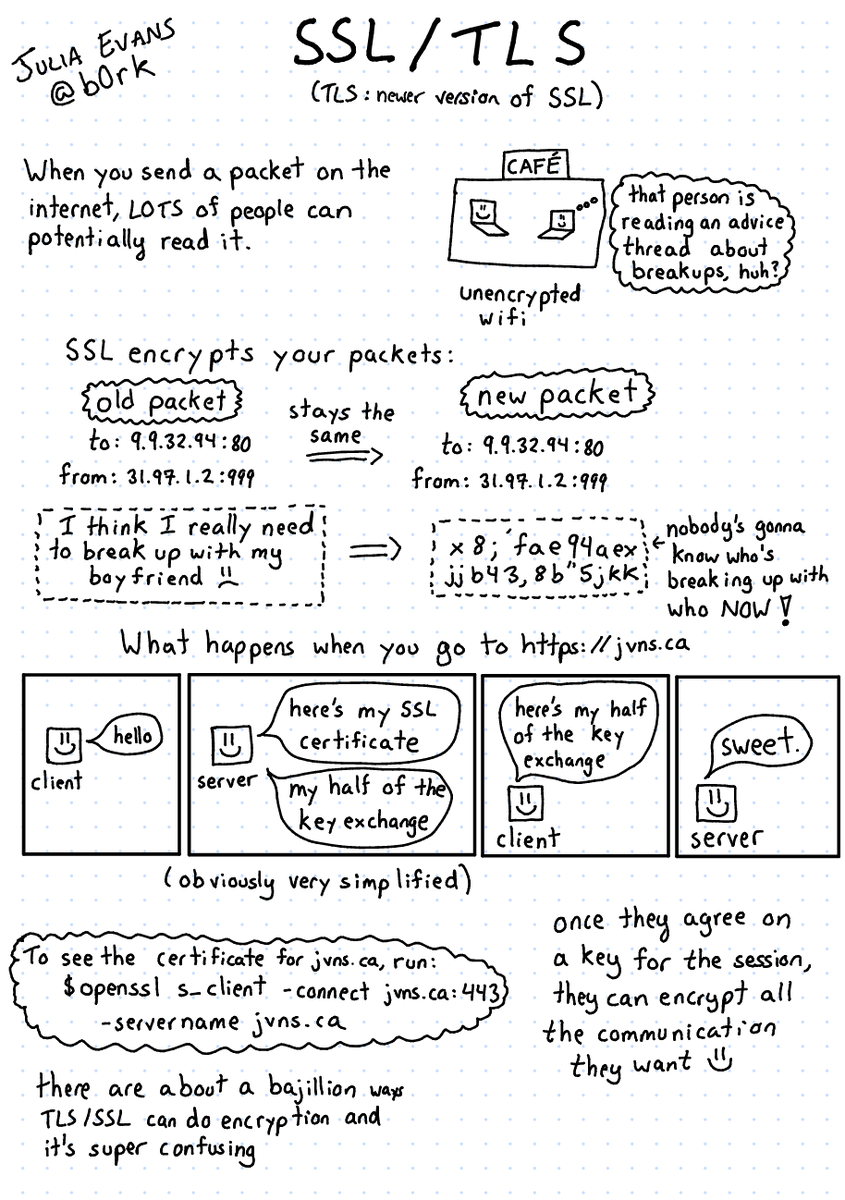 JULIA EVANS
@b0rk
SSL/TLS
(TLS: newer version of SSL)
When you send a packet on the
internet, LOTS of people can
potentially read it.
CAFÉ
unencrypted
wifi
that person is
reading an advice
thread about
breakups, huh?
SSL encrypts your packets:
old packet
to: 9.9.32.94:80
from: 31.97.1.2:999
stays the
same
new packet
to: 9.9.32.94:80
from: 31.97.1.2:999
I think I really need
to break up with my
boyfriend
x8;´fae94aex
jjb43,8b"5jkk
nobody's gonna
know who's
breaking up with
who NOW!
What happens when you go to https://jvns.ca
hello
client
here's my SSL
certificate
server
my half of the
key exchange
here's my half
of the key
exchange
client
sweet.
server
(obviously very simplified)
To see the certificate for jvns.ca, run:
$openssl s_client -connect jvns.ca:443
-servername jvns.ca
once they agree on
a key for the session,
they can encrypt all
the communication
they want
there are about a bajillion ways
TLS/SSL can do encryption and
it's super confusing